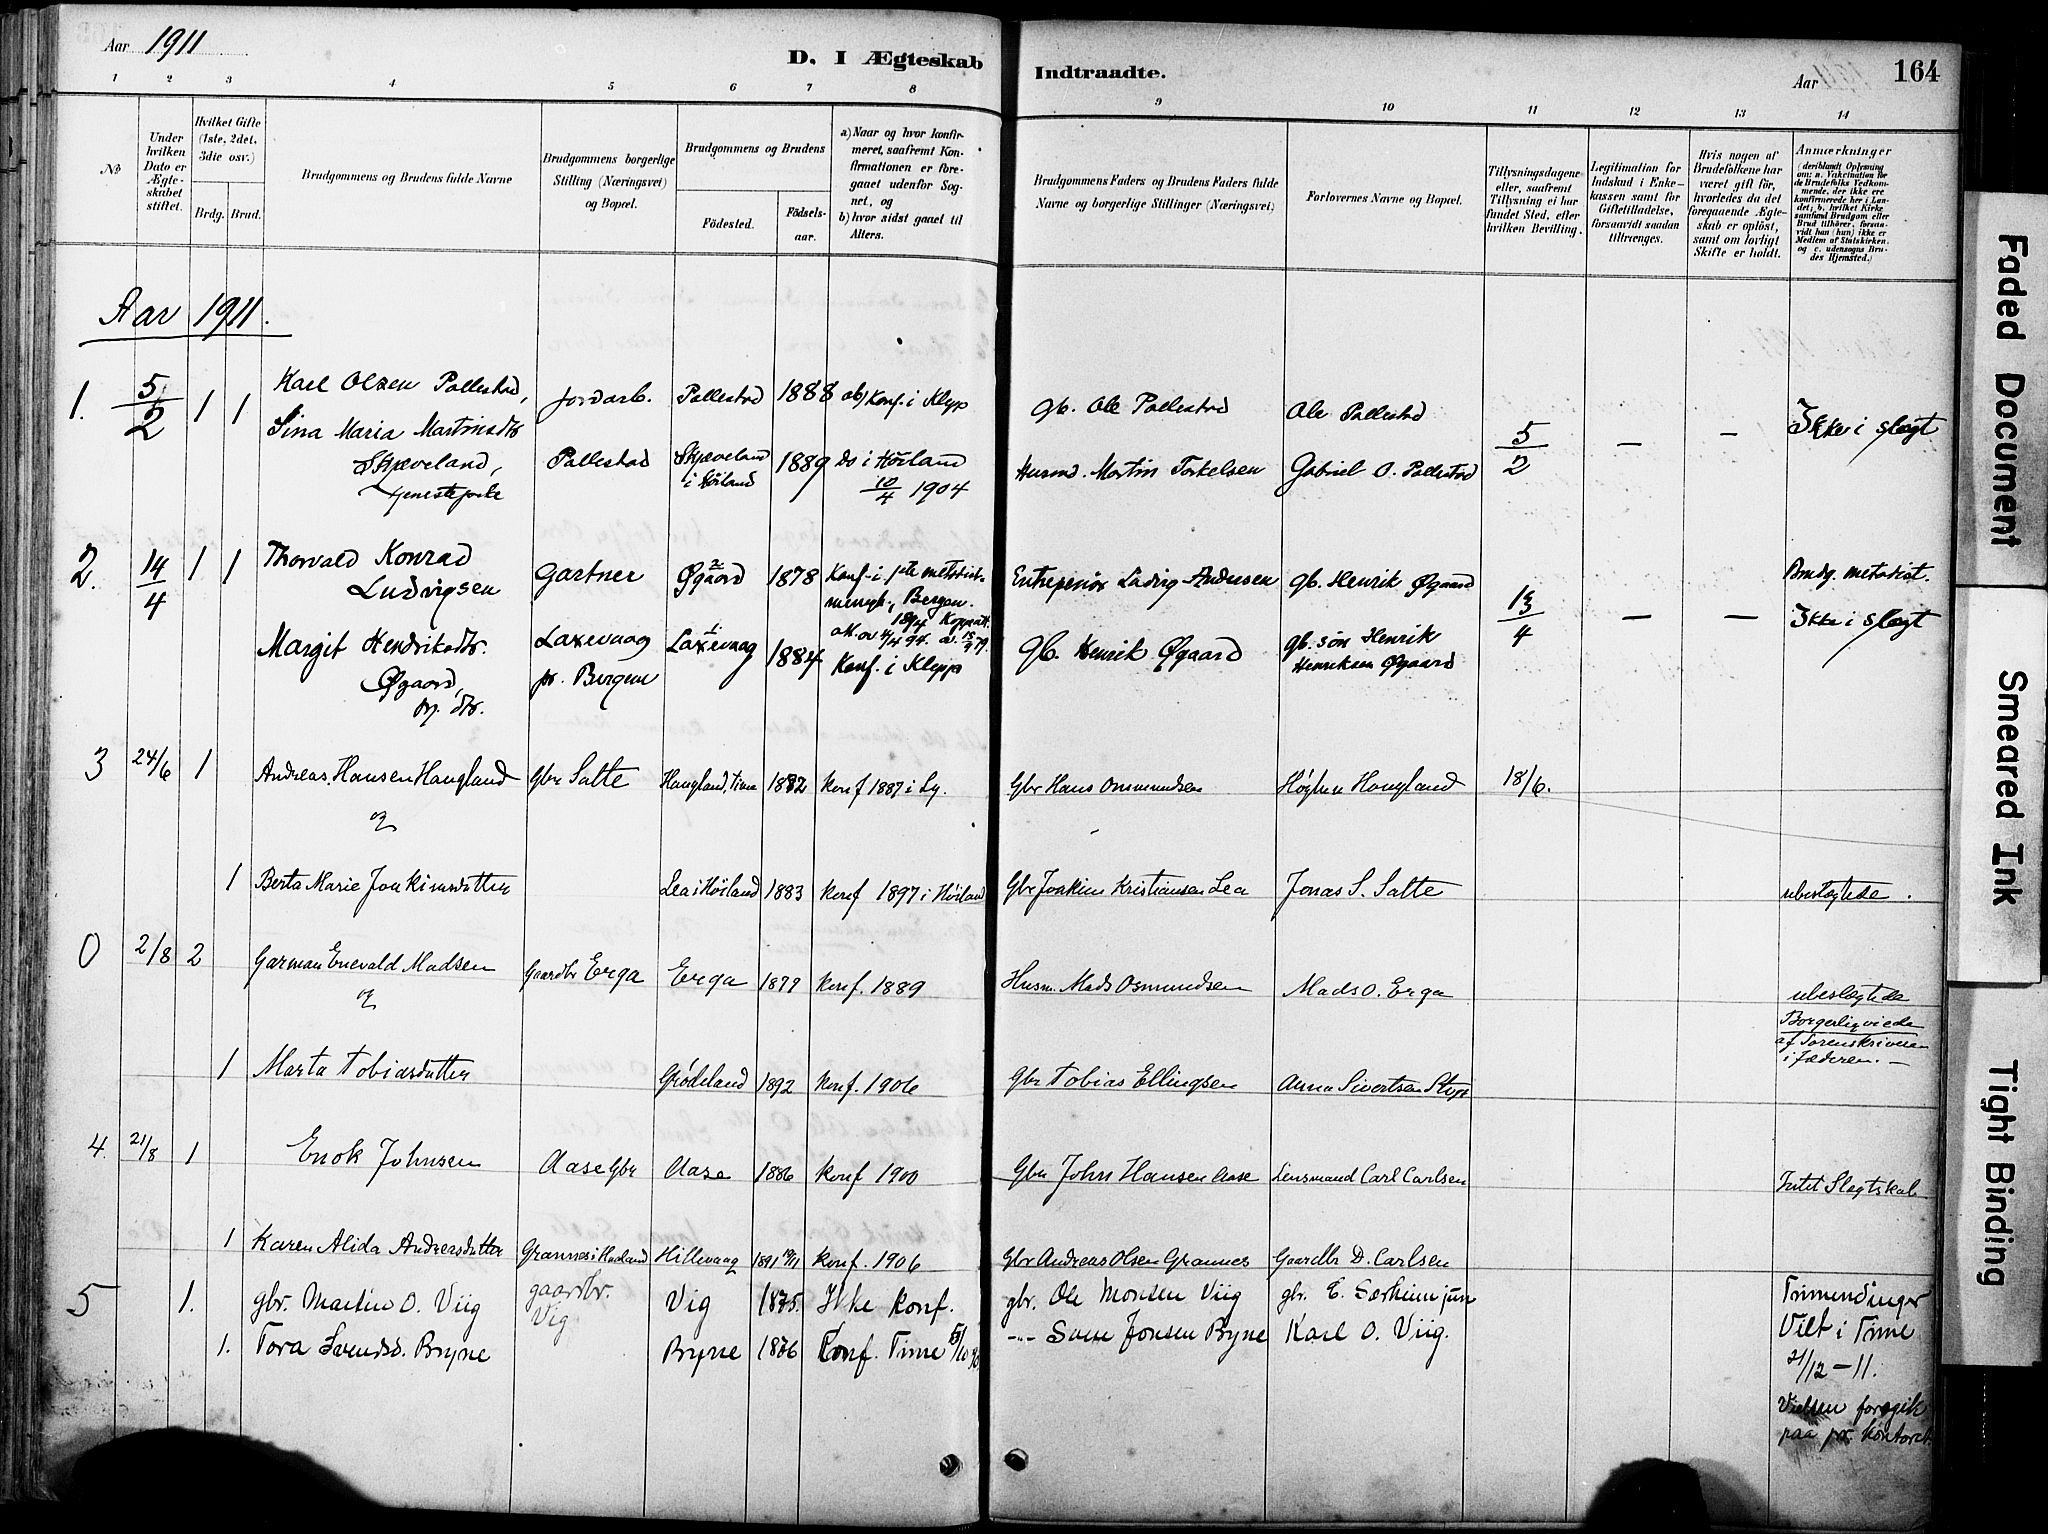 Aar 1911
D. I Ægteskab
Indtraadte.
Aar
164
1 2 3 4 5 6 7 8 9 10 11 12 13 14
No
Under hvilken Dato er Ægteskabet stiftet.
Hvilket Gifte (1ste, 2det, 3die osv.)
Brdg. Brud.
Brudgommens og Brudens fulde Navne
Brudgommens borgerlige Stilling (Næringsvei) og Bopæl.
Brudgommens og Brudens
Födested.
Födselsaar.
a) Naar og hvor konfirmeret, saafremt Konfirmationen er foregaaet udenfor Sognet, og
b) hvor sidst gaaet til Alters.
Brudgommens Faders og Brudens Faders fulde Navne og borgerlige Stillinger (Næringsvei)
Forlovernes Navne og Bopæl.
Tillysningsdagene eller, saafremt Tillysning ei har fundet Sted, efter hvilken Bevilling.
Legitimation for Indskud i Enkekassen samt for Giftetilladelse, forsaavidt saadan tiltrænges.
Hvis nogen af Brudefolkene har været gift för, hvorledes da det foregaaende Ægteskab er oplöst, samt om lovligt Skifte er holdt.
Anmærkninger
(deriblandt Oplysning om: a. Vakcination for de Brudefolks Vedkommende, der ikke ere konfirmerede her i Landet; b. hvilket Kirkesamfund Brudgom eller Brud tilhörer, forsaavidt han (hun) ikke er Medlem af Statskirken, og c. udensogns Brudes Hjemsted.)
Aar 1911.
1. 5/2 1 1 Karl Olsen Pallestad, Jordarb. Pallestad 1888 Konf. i Klepp gb. Ole Pallestad Ole Pallestad 5/2 — — Ikke i slegt
Sina Maria Martinsdtr
Skjæveland, Pallestad Skjæveland i Høiland 1889 do i Høiland 10/4 1904 Husmd. Martin Torkelsen Gabriel O. Pallestad
tjenestepike
2. 14/4 1 1 Thorvald Konrad
Ludvigsen Gartner Øgaard 1878 Konf. i 1ste metodistmenigh., Bergen. Entreprenør Ludvig Andersen gb. Henrik Øgaard 13/4 — — Brudg. metodist.
Ikke i slegt
Margit Hendriksdtr. Laxevaag Laxevaag 1884 Konf. i Klepp gb. Henrik Øgaard gb. søn Henrik
Øgaard, pr. Bergen Henriksen Øgaard
3 24/6 1 Andreas Hansen Haugland Gbr Salte Haugland, Time 1872 konf 1887 i Ly. Gbr Hans Ommundsen Haugland 18/6.
og
1 Berta Marie Joakimsdatter Lea i Høiland 1883 konf 1897 i Høiland Gbr Joakim Kristiansen Lea Jonas S. Salte ubeslegtede.
0 2/8 2 Garman Enevald Madsen Gaardbr Erga Erga konf. 1889 Husm. Mads Osmundsen Mads O. Erga ubeslegtede
og
Borgerlig viede
af Sorenskriveren
i Jæderen. —
1 Marta Tobiasdatter Grødeland 1892 konf. 1906 Gbr Tobias Ellingsen Anna Sivertsen
4. 21/8 1 Enok Johnsen Aase Gbr Aase 1886 konf 1900 Gbr John Hansen Aase Lensmand Carl Carlsen Intet Slegtskab
1 Karen Alida Andreasdatter Grannes i Haaland Hillevaag 1891 konf. 1906 Gbr Andreas Olsen Grannes Gaardbr D. Carlsen
5 1. gbr. Martin O. Viig gaardbr. Vig Vig 1875. Ikke konf. gbr. Ole Monsen Viig gbr. E. Særheim jun Frimendinger
1. Tora Svendsd. Bryne Bryne 1876 Konf. Time Sven Jonsen Bryne Karl O. Viig. Viet i Time
21/12 – 11.
Vielsen foregik
paa pr. kontoret.
Faded Document
Smeared Ink
Tight Binding